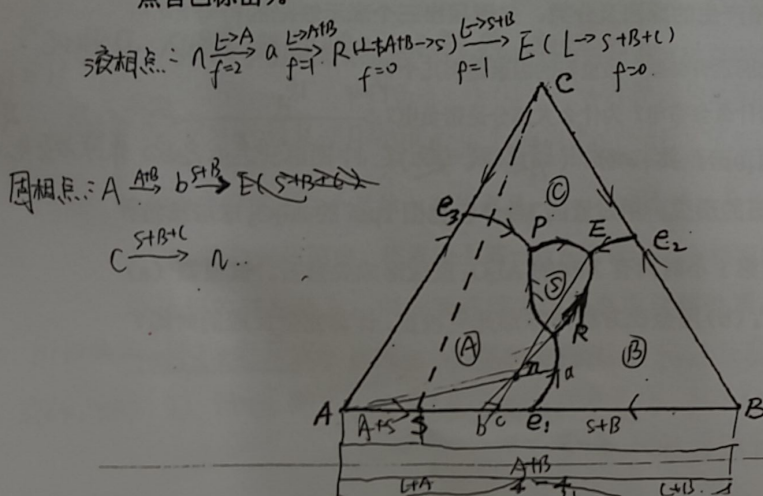 液相点: n L→A f=2 a L→A+B f=1 R(L+A+B→S) f=0 L→S+B f=1 E(L→S+B+C) f=0
固相点: A A+B b S+B E(S+B+C)
C S+B+C n..
C
e₃
P
E
e₂
Ⓒ
Ⓢ
R
Ⓐ
n
a
Ⓑ
A
A+S
S
b
c
e₁
S+B
B
A+B
L+A
L+B